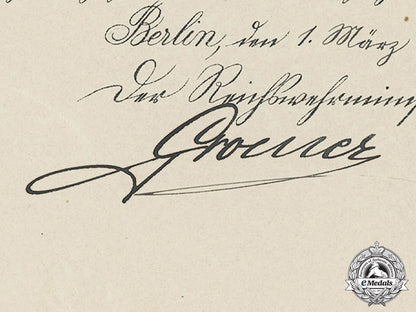 Berlin, den 1. März
Der Reichswehrmini
Groener
eMedals